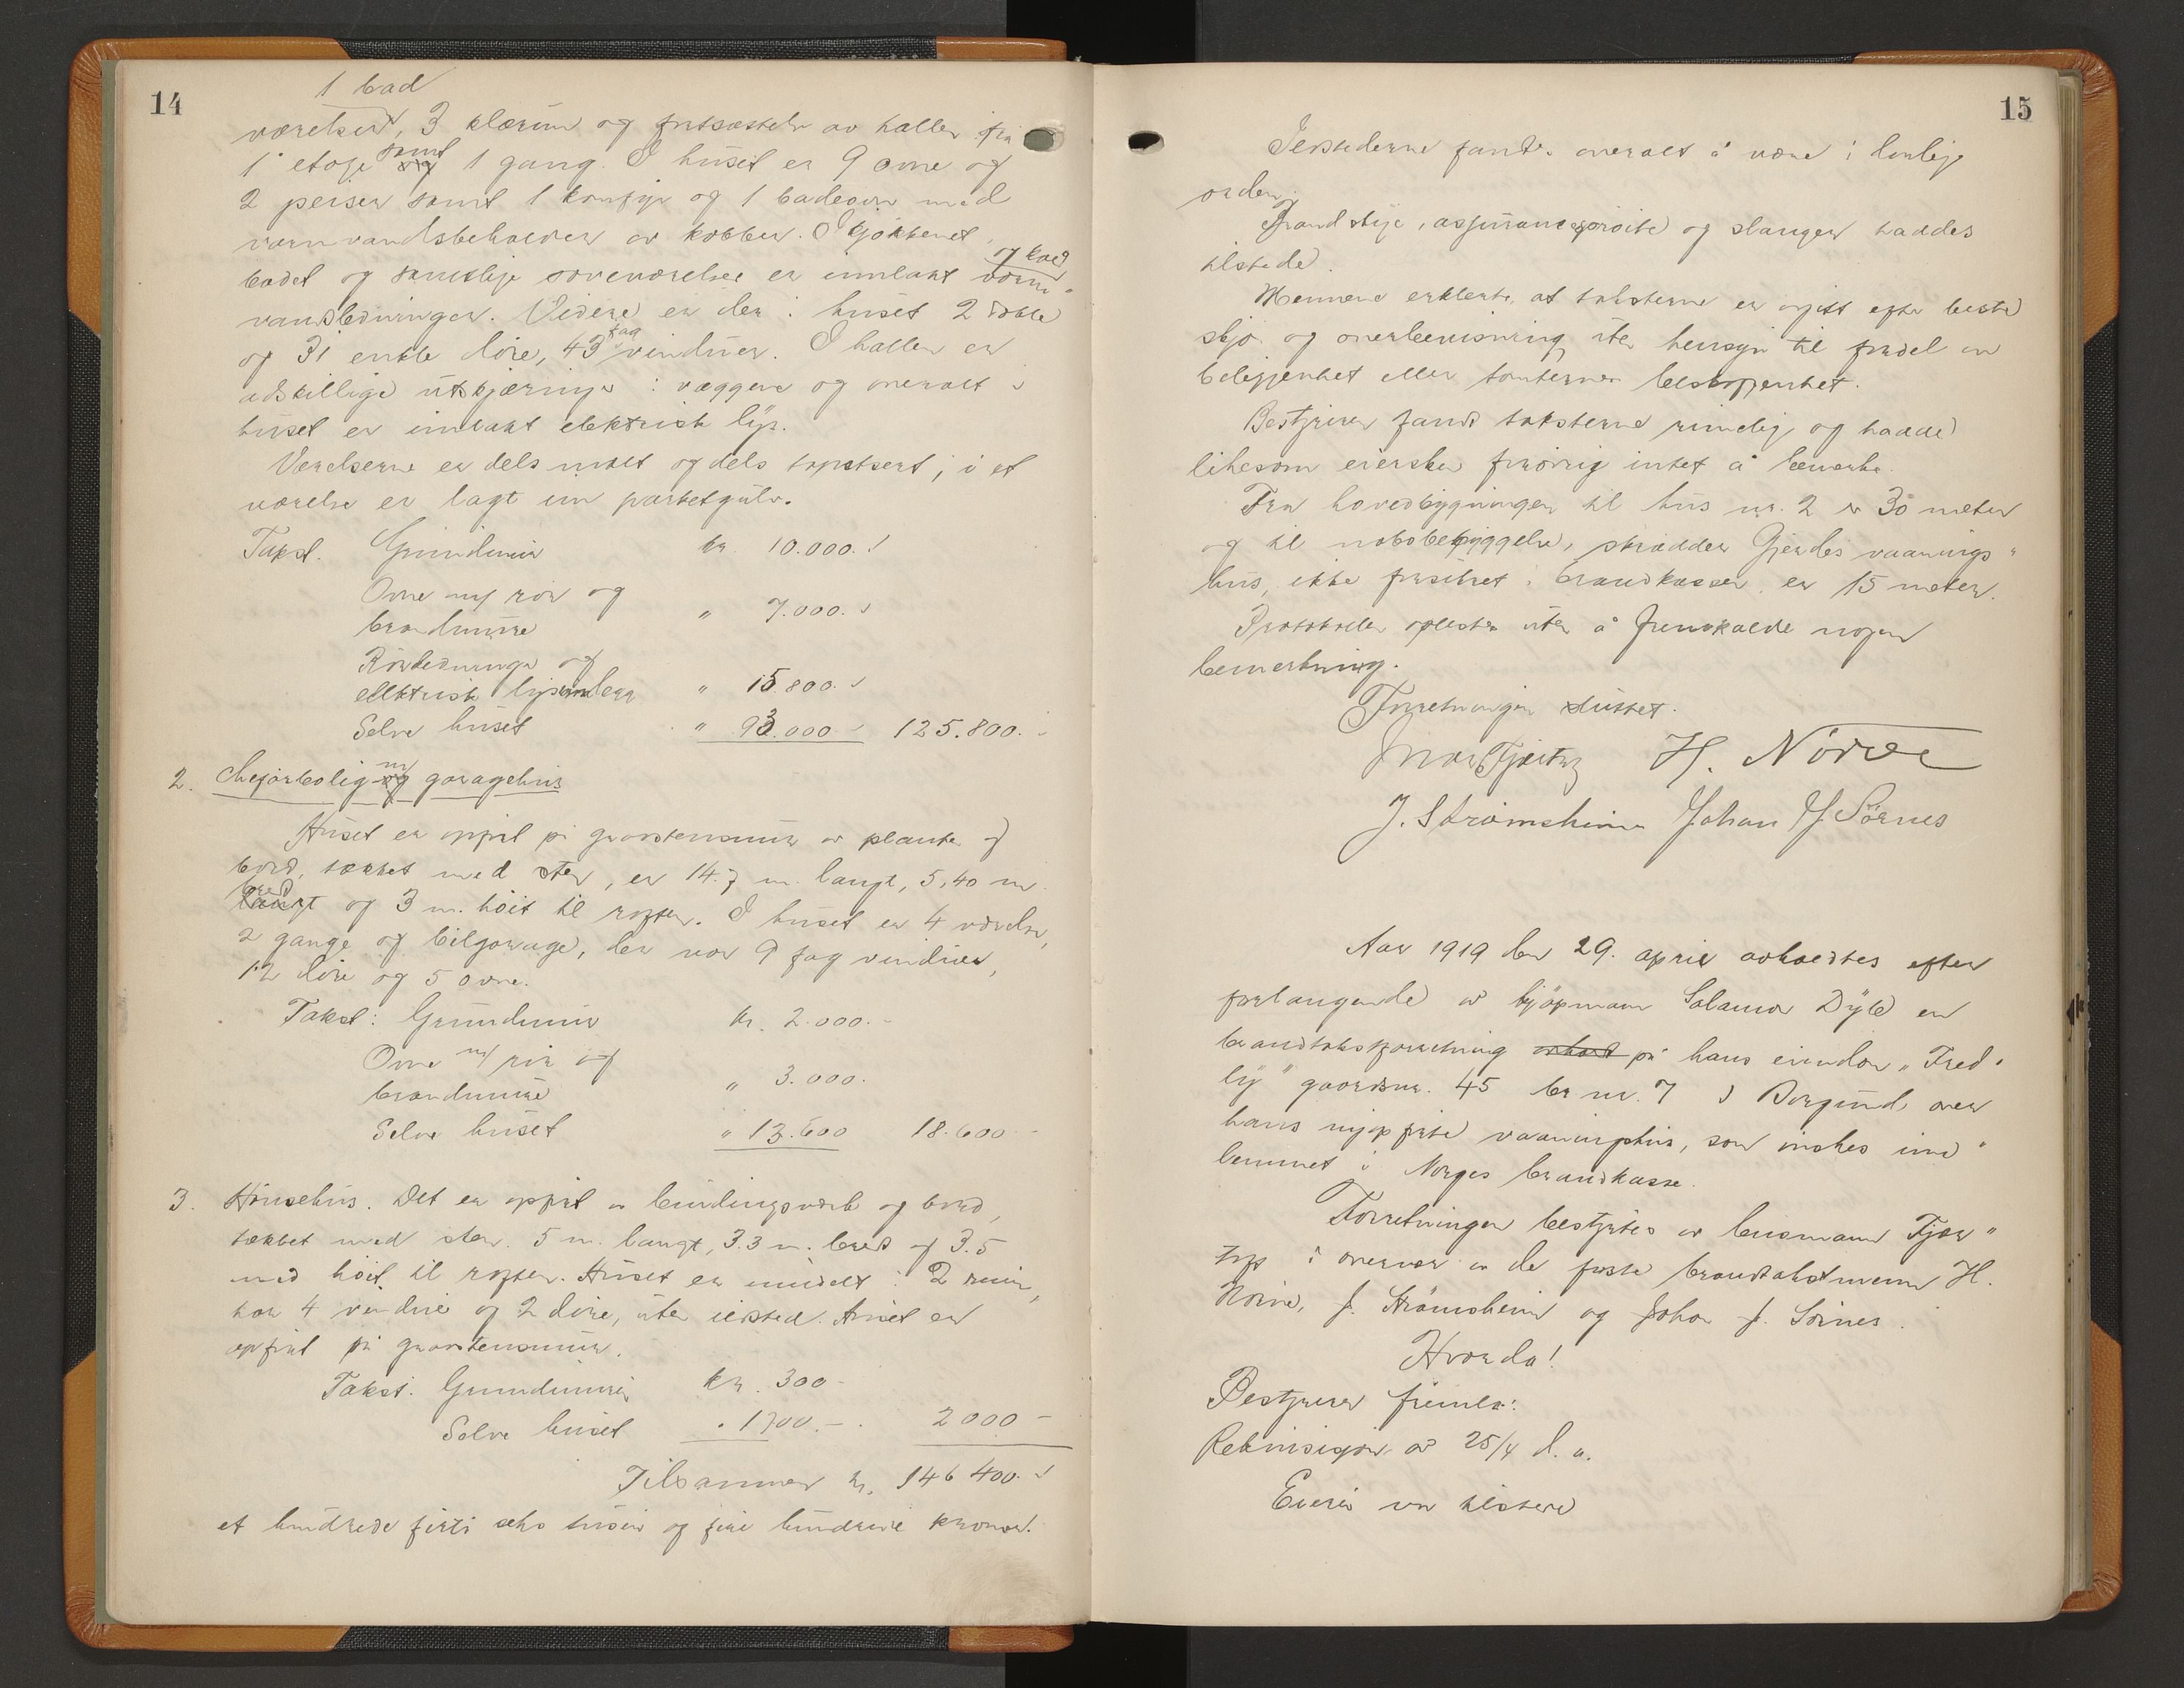 14
1 bad
værelser, 3 klærum og fortsættelse av hallen fra
1 etage samt 1 gang. I huset er 9 ovne og
2 peiser samt 1 komfyr og 1 badeovn med
varmvandsbeholder av kobber. I kjøkkenet,
badet og samtlige soveværelser er innlakt varm- og kold
vandsledninger. Videre er der i huset 2 doble
og 31 enkle døre, 43 fag vinduer. I hallen er
adskillige utskjæringer i væggene og overalt i
huset er innlakt elektrisk lys.
Værelserne er dels malt og dels tapetsert; i et
værelse er lagt inn parketgulv.
Takst. Grundmur kr. 10.000.
Ovne m/ rør og
brandmure " 7.000.
Rørledninger og
elektrisk lysanlæg " 15.800.
Selve huset " 93.000 125.800.
2. Chejørbolig m/ garagehus
Huset er oppført på graastensmur av planker og
bord, tækket med sten, er 14.7 m. langt, 5,40 m
bredt og 3 m. høit til røstet. I huset er 4 værelser,
2 gange og bilgarage, der var 9 fag vinduer,
12 døre og 5 ovne.
Takst: Grundmur kr. 2.000.-
Ovne m/ rør og
brandmure " 3.000.
Selve huset " 13.600 18.600.-
3. Hønsehus. Det er oppført av bindingsverk og bord,
tækket med sten. 5 m. langt, 3.3 m. bred og 3.5
med høit til røstet. Huset er inndelt i 2 rum,
har 4 vinduer og 2 døre, uten ildsted. Huset er
oppført på graastensmur.
Takst. Grundmur kr. 300-
Selve huset " 1700.- 2000-
Tilsammen kr. 146 400.
et hundrede førti seks tusen og fire hundrede kroner.
15
Ildstederne fandtes overalt å være i lovlige
orden.
Brandstige, assuransesprøite og slanger haddes
tilstede.
Mennene erklærte, at taksterne er avgitt efter beste
skjøn og overbevisning uten hensyn til fordel av
beliggenhet eller tomternes beskaffenhet.
Bestyreren fandt taksterne rimelig og hadde
likesom eiersken forøvrig intet å bemerke.
Fra hovedbygningen til hus nr. 2 er 30 meter
og til nabobebyggelse, skrædder Gjerdes vaanings-
hus, ikke forsikret i brandkassen er 15 meter.
Protokollen oplestes uten å fremkalde nogen
bemerkning.
Forretningen sluttet.
Ivar Fjærtoft H. Nørve
J. Strømsheim Johan J. Sörnes
Aar 1919 den 29. april avholdtes efter
forlangende av kjøpmann Salamon Dyb en
brandtakstforretning på hans eiendom "Fred-
ly" gaardsnr. 45 br nr. 7 i Borgund over
hans nyopførte vaaningshus, som ønskes ind-
lemmet i Norges brandkasse.
Forretningen bestyrtes av lensmann Fjær-
toft i overvær av de faste brandtakstmenn H.
Nørve, J. Strømsheim og Johan J. Sörnes.
Hvorda!
Bestyreren fremla:
Rekvisisjon av 25/4 d. a.
Eieren var tilstede